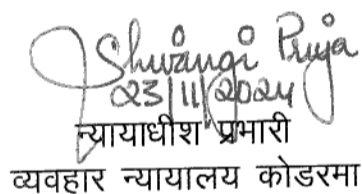 Shivangi Priya
23/11/2024
न्यायाधीश प्रभारी
व्यवहार न्यायालय कोडरमा